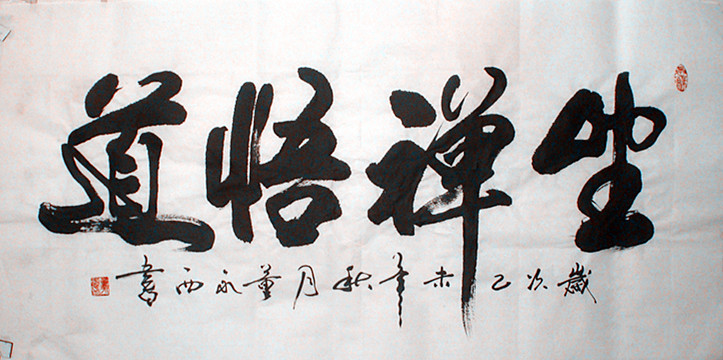 坐禅悟道
歲次乙未年秋月董永西書